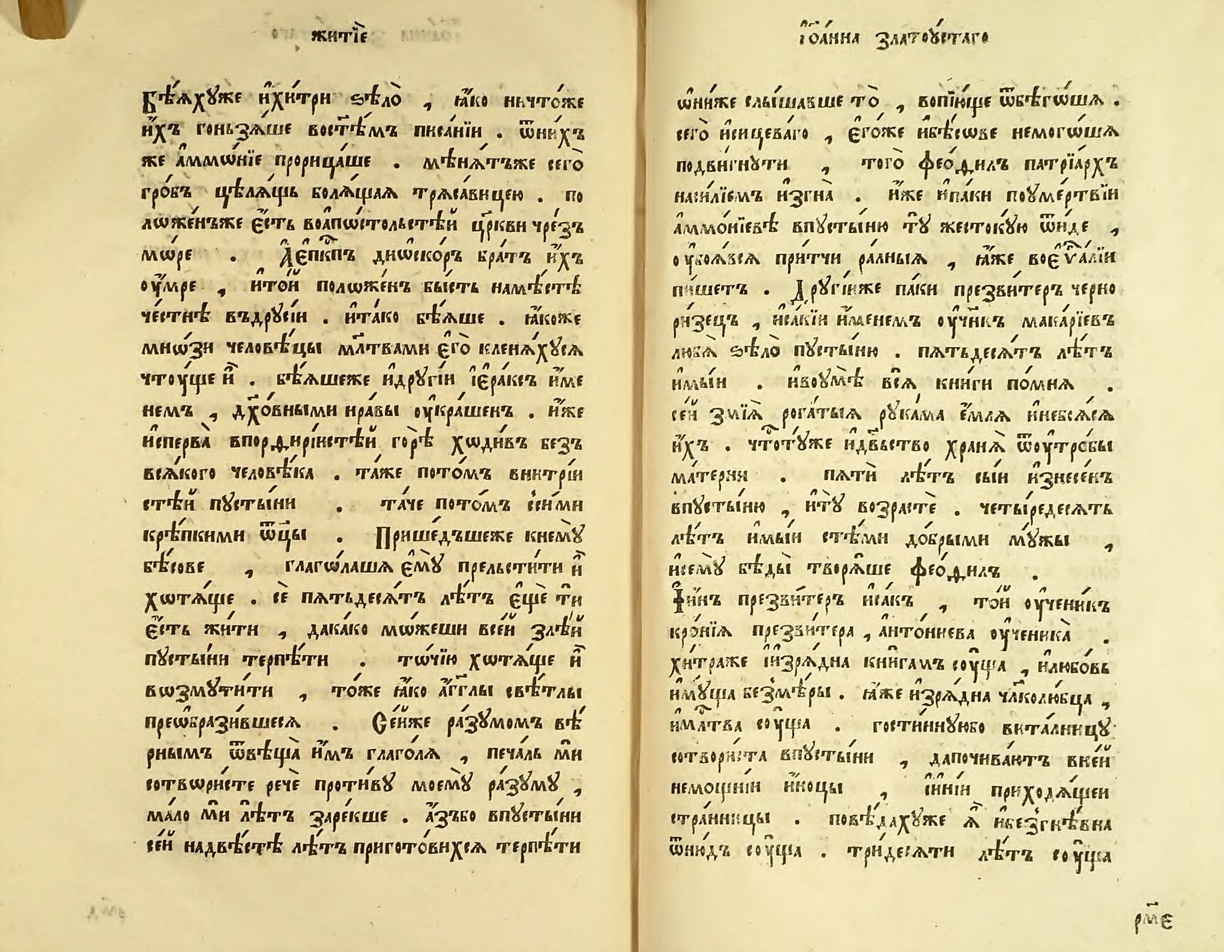 житїе
Бѣѧхꙋже и҆хи́три ѕѣло̀ , ꙗ҆́ко ничто́же
и҆́хъ гоньзѧ́ше востѣ́мъ писа́нїи . ѿни́хъ
же а҆ммѡ́нїе прорица́ше . мѣнѧ́тъже сего̀
гро́бъ цѣлѧ́щь болѧ́щаѧ трѧса́вицею . по
лѡже́нъже є҆́сть воапѡ́стольстѣй цр҃кви чре́зъ
мѡ́ре . Де́пкпъ дио́скоръ бра́тъ и҆́хъ
оу҆́мре , и҆то́й полѡже́нъ бы́сть намѣ́стѣ
че́стнѣ въдрꙋ́сїи . и҆та́ко бѣ́ѧше . ꙗ҆́коже
мно́ѕи человѣ́цы мл҃твами є҆го̀ кленѧ́хꙋсѧ
чтоу́ще и҆̀ . бѣ́ѧшеже и҆дрꙋгі́й і҆е́раѯъ и҆́ме
немъ , дх҃о́вными нра́вы оу҆кра́шенъ . и҆́же
и҆сперва̀ впорѳирі́истѣй горѣ̀ ходи́въ безъ
всѧ́кого человѣ́ка . та́же пото́мъ внитрі́и
стѣй пꙋсты́ни . та́че пото́мъ си́ми
крѣ́пкими ѿц҃ы . Прише́дъшеже кнемꙋ̀
бѣ́сове , глаго́лашѧ є҆мꙋ̀ прельсти́ти и҆̀
хотѧ́ще . сѐ пѧтьдесѧ́тъ лѣ́тъ є҆ще́ ти
є҆́сть жи́ти , дака́ко мо́жеши всей зле́й
пꙋсты́ни терпѣ́ти . то́чїю хотѧ́ще и҆̀
возмꙋти́ти , то́же ꙗ҆́ко а҆́гг҃лы свѣ́тлы
преѡбрази́вшесѧ . Се́йже ра́зꙋмомъ вѣ́
рнымъ ѿвѣща̀ и҆́мъ глаго́лѧ , печа́ль мѝ
сотвори́сте речѐ проти́вꙋ моемꙋ̀ ра́зꙋмꙋ ,
ма́ло мѝ лѣ́тъ заре́кше . а҆́зъбо впꙋсты́ни
се́й надвѣ́стѣ лѣ́тъ пригото́вихсѧ терпѣ́ти
і҆ѡа́нна златоꙋ́стаго
ѡ҆ни́же слы́шавше то̀ , вопїю́ще ѿбѣго́шѧ .
сего̀ и҆сицева́го , є҆го́же и҆бѣ́сове немого́шѧ
подви́гнꙋти , того̀ фео́ѳилъ патрїа́рхъ
наси́лїемъ и҆згна̀ . и҆́же и҆па́ки поꙋме́ртвїи
а҆ммо́нїевѣ впꙋсты́ню тꙋ̀ жесто́кꙋю ѿи́де ,
оу҆боѧ́всѧ при́тчи ра́лныѧ , ꙗ҆́же воеѵа́лїи
пи́шетъ . Дрꙋгі́йже па́ки презви́теръ черно
ри́зецъ , и҆са́кїи и҆́менемъ оу҆чн҃къ мака́рїевъ
любѧ̀ ѕѣло̀ пꙋсты́ню . пѧтьдесѧ́тъ лѣ́тъ
и҆мы́й . и҆воꙋмѣ̀ всѧ̀ кни́ги по́мнѧ .
се́й змїѧ̀ рога́тыѧ рꙋка́ма є҆́млѧ и҆небоѧ́сѧ
и҆́хъ . чтоту́же и҆дв҃ьство хранѧ̀ ѿоутро́бы
ма́терни . пѧтѝ лѣ́тъ сы́й и҆знесе́нъ
впꙋсты́ню , и҆тꙋ̀ возрастѐ . четы́редесѧтъ
лѣ́тъ и҆мы́й стѣ́ми до́брыми мꙋ́жы ,
и҆семꙋ̀ бѣды̀ творѧ́ше фео́ѳилъ .
И҆́инъ презви́теръ и҆са́къ , то́й оу҆чени́къ
кро́нїѧ презви́тера , а҆нто́ниева оу҆ченика̀ .
хи́траже і҆изрѧ́дна кни́гамъ соу́ща , и҆любо́вь
и҆мꙋ́ща безмѣ́ры . ꙗ҆́же и҆зрѧ́дна чл҃колю́бца ,
и҆мл҃тва соу́ща . гости́ннꙋюбо вита́лницꙋ
сотвори́ста впꙋсты́ни , дапочива́ютъ вне́й
немощні́и и҆́ноцы , і҆и҆ні́и приходѧ́щеи
стра́нницы . повѣ́дахꙋже ѧ҆̀ и҆безгнѣ́вна
ѿню́дъ соу́ща . три́десѧти лѣ́тъ соу́ща
рм҃е